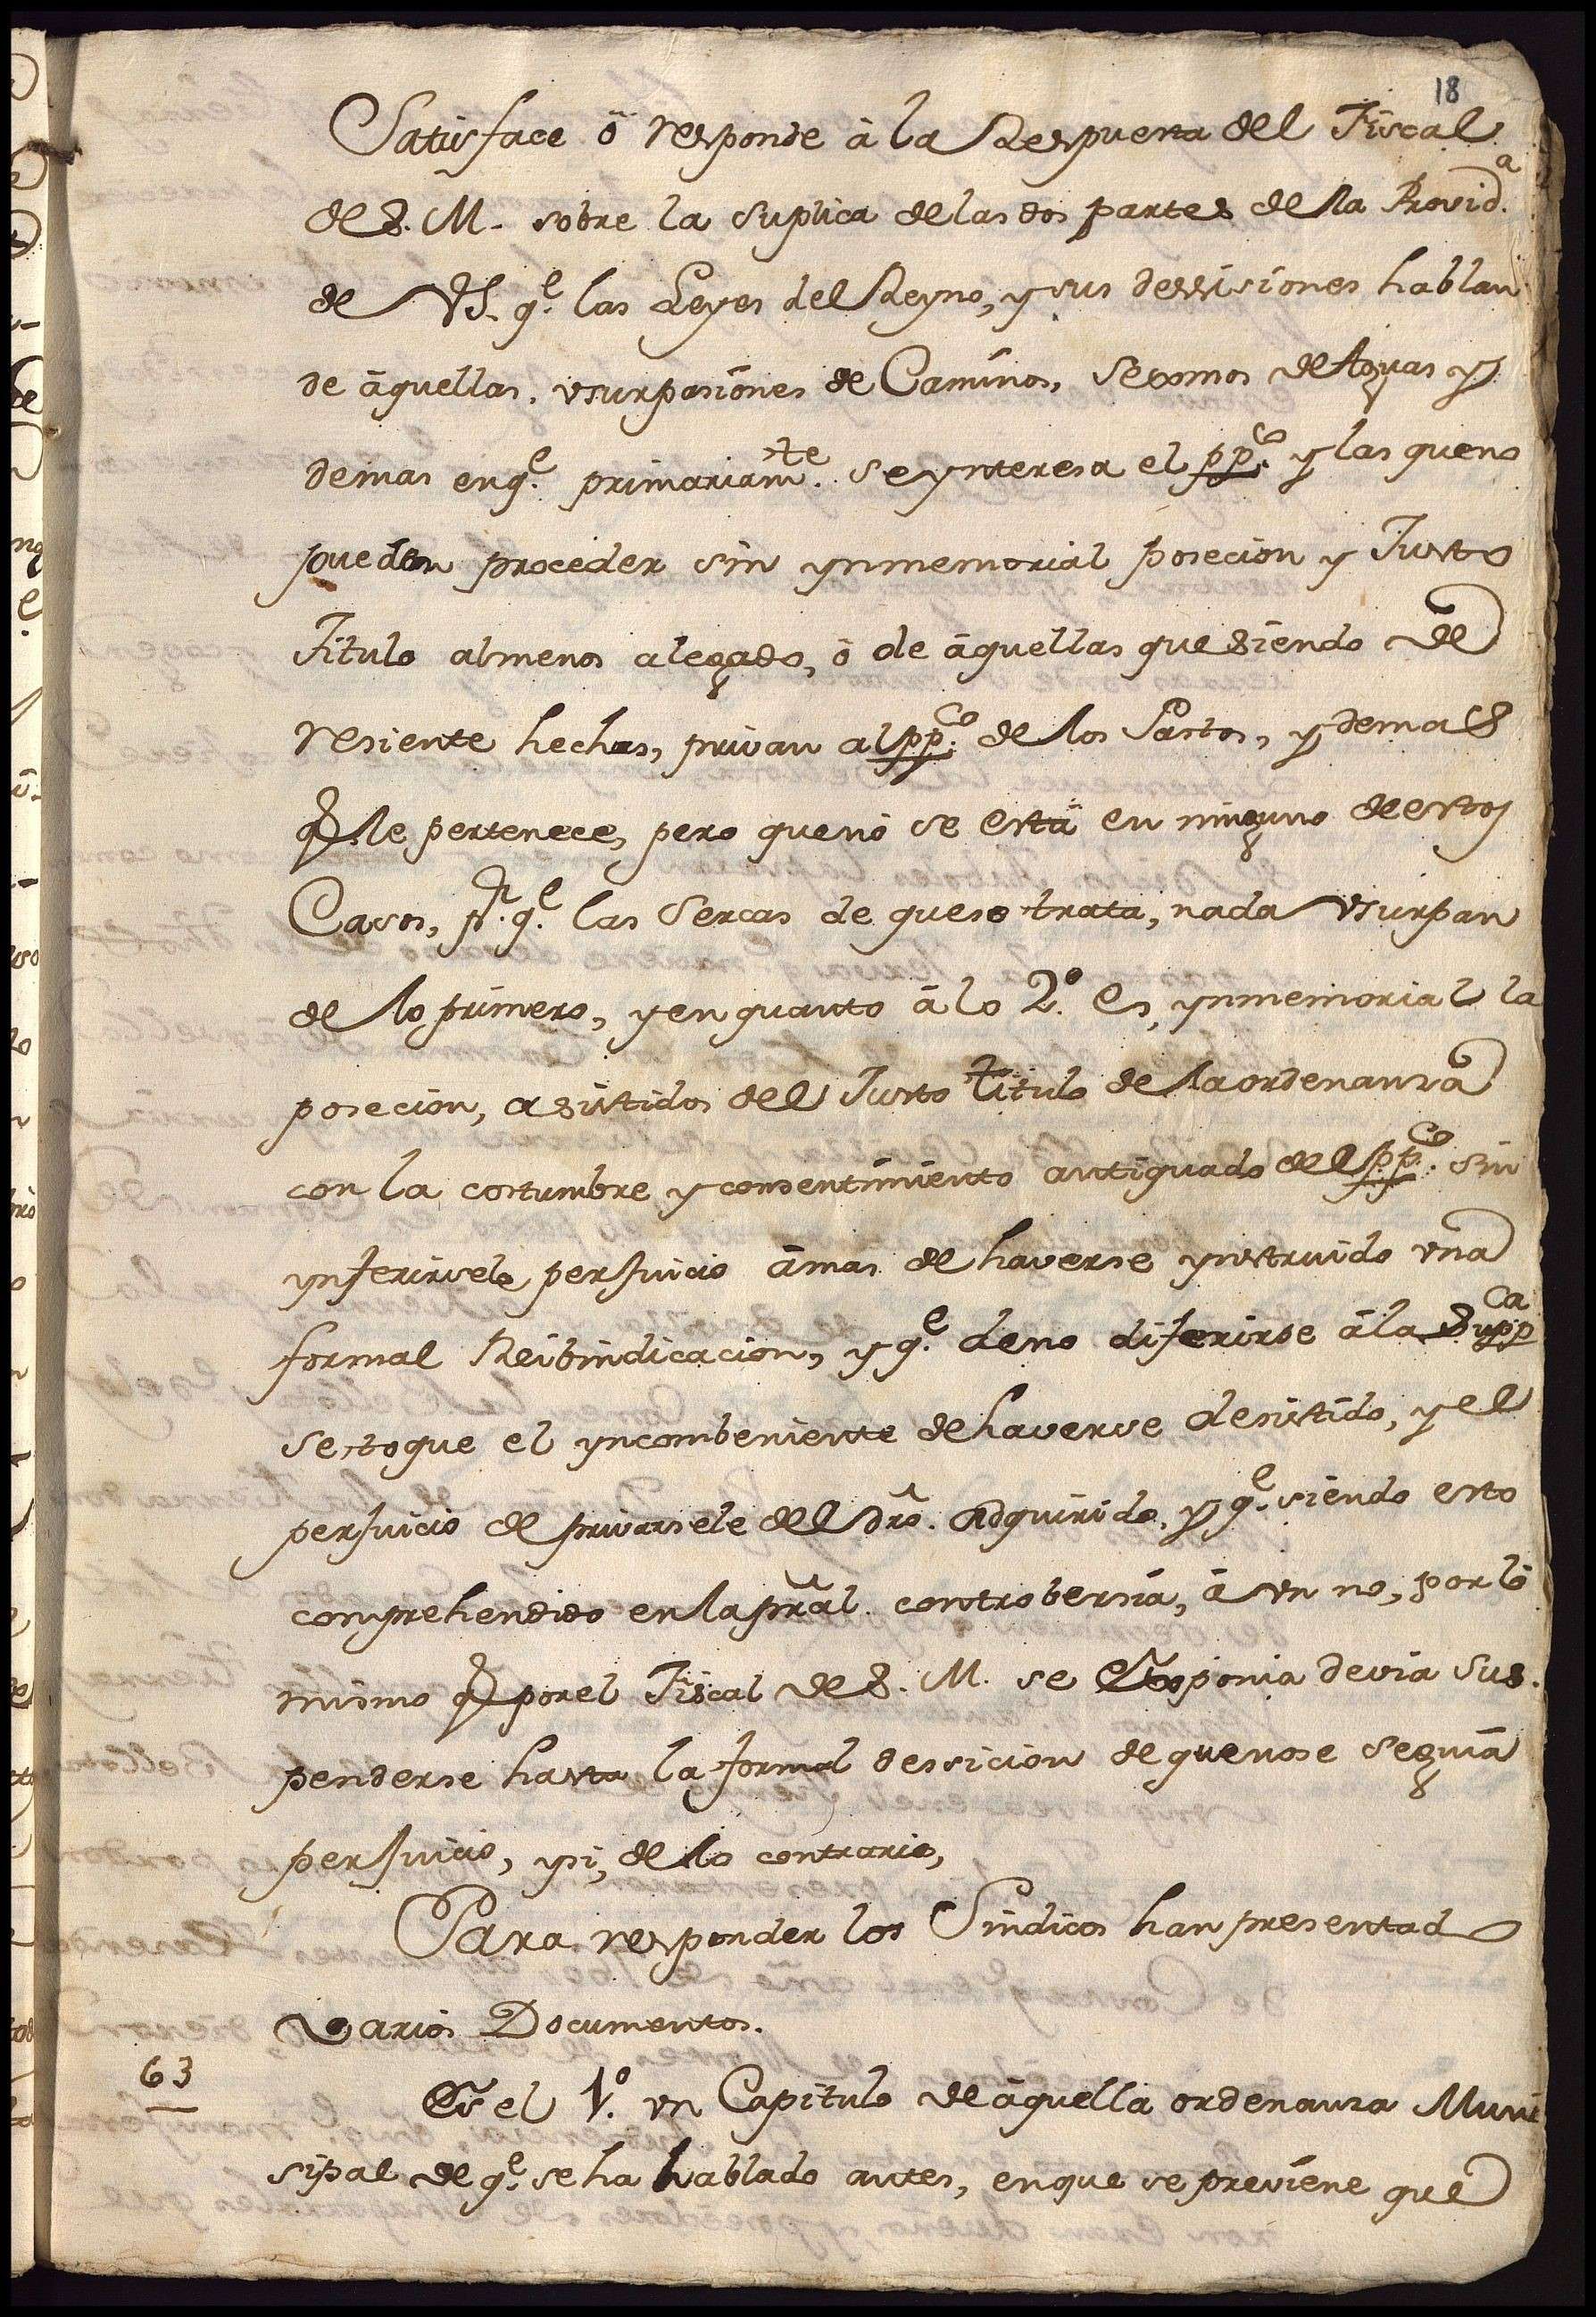 18
Satisface ö responde à la Respuesta del Fiscal
de S. M. sobre la suplica delas dos partes de la Provid.ª
de VS. q.e las Leyes del Reyno, y sus dessisiones hablan
de äquellas, usurpasiones de Caminos, se tomos de Aguas y
demas enq.e primariam.te se ynteresa el pp.co y las queno
pueden proceder sin ynmemorial posecion y Justo
Titulo almenos alegado, ö de äquellas que siendo de
resiente hechas, privan al pp.co de los Pastos, y demas
q.e le pertenece, pero quenö se està en ninguno de estos
Casos, p.r q.e las Sercas de quese trata, nada usurpan
de lo primero, y enquanto älo 2.º es, ynmemorial la
posecion, asistidos del Justo titulo de la ordenanza
con la costumbre y consentimiento antiguado del pp.co sin
ynferirsele perjuicio ämas de haverse ynstruido una
formal Reibindicacion, y q.e deno diferirse ä la Supp.ca
se toque el yncombeniente de haverse desistido, y el
perjuicio de privarsele del dro. Adquirido, y q.e siendo esto
comprehendido en la pral. controbersia, ä un no, por lo
mismo q.e por el Fiscal de S. M. se exponia devia sus-
penderse hasta la formal dessicion de quenose seguia
perjuicio, y si, de lo contrario,
Para responder los Sindicos han presentado
varios Documentos.
63
Es el 1.º un Capitulo de äquella ordenanza Muni
sipal de q.e se ha hablado antes, enque se previene que